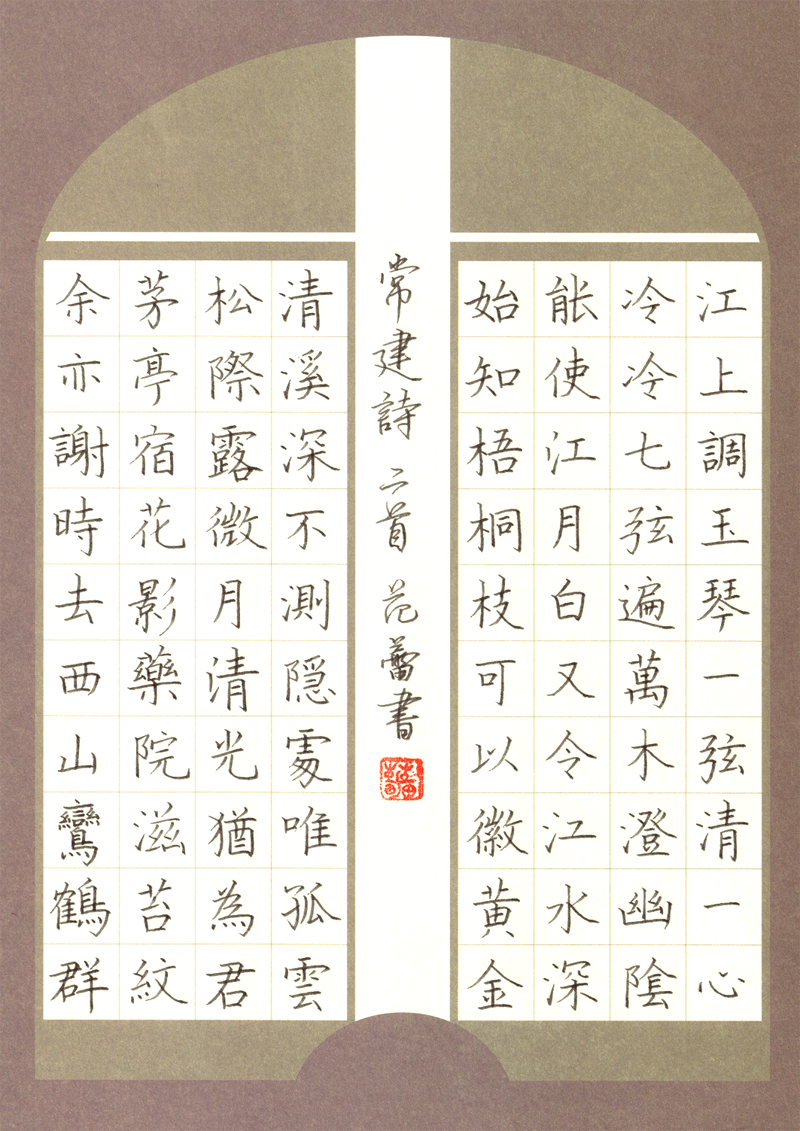 江上調玉琴一弦清一心
冷冷七弦遍萬木澄幽陰
能使江月白又令江水深
始知梧桐枝可以徽黄金
常建詩二首 范蕾書
清溪深不測隐處唯孤雲
松際露微月清光猶為君
茅亭宿花影藥院滋苔紋
余亦謝時去西山鸞鶴群